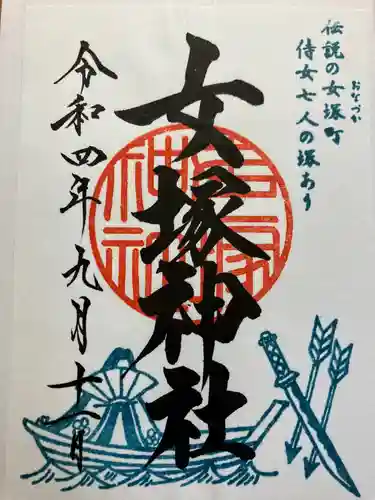 伝説の女塚町
おなづか
侍女七人の塚あり
女塚神社
令和四年九月十一日
女塚神社